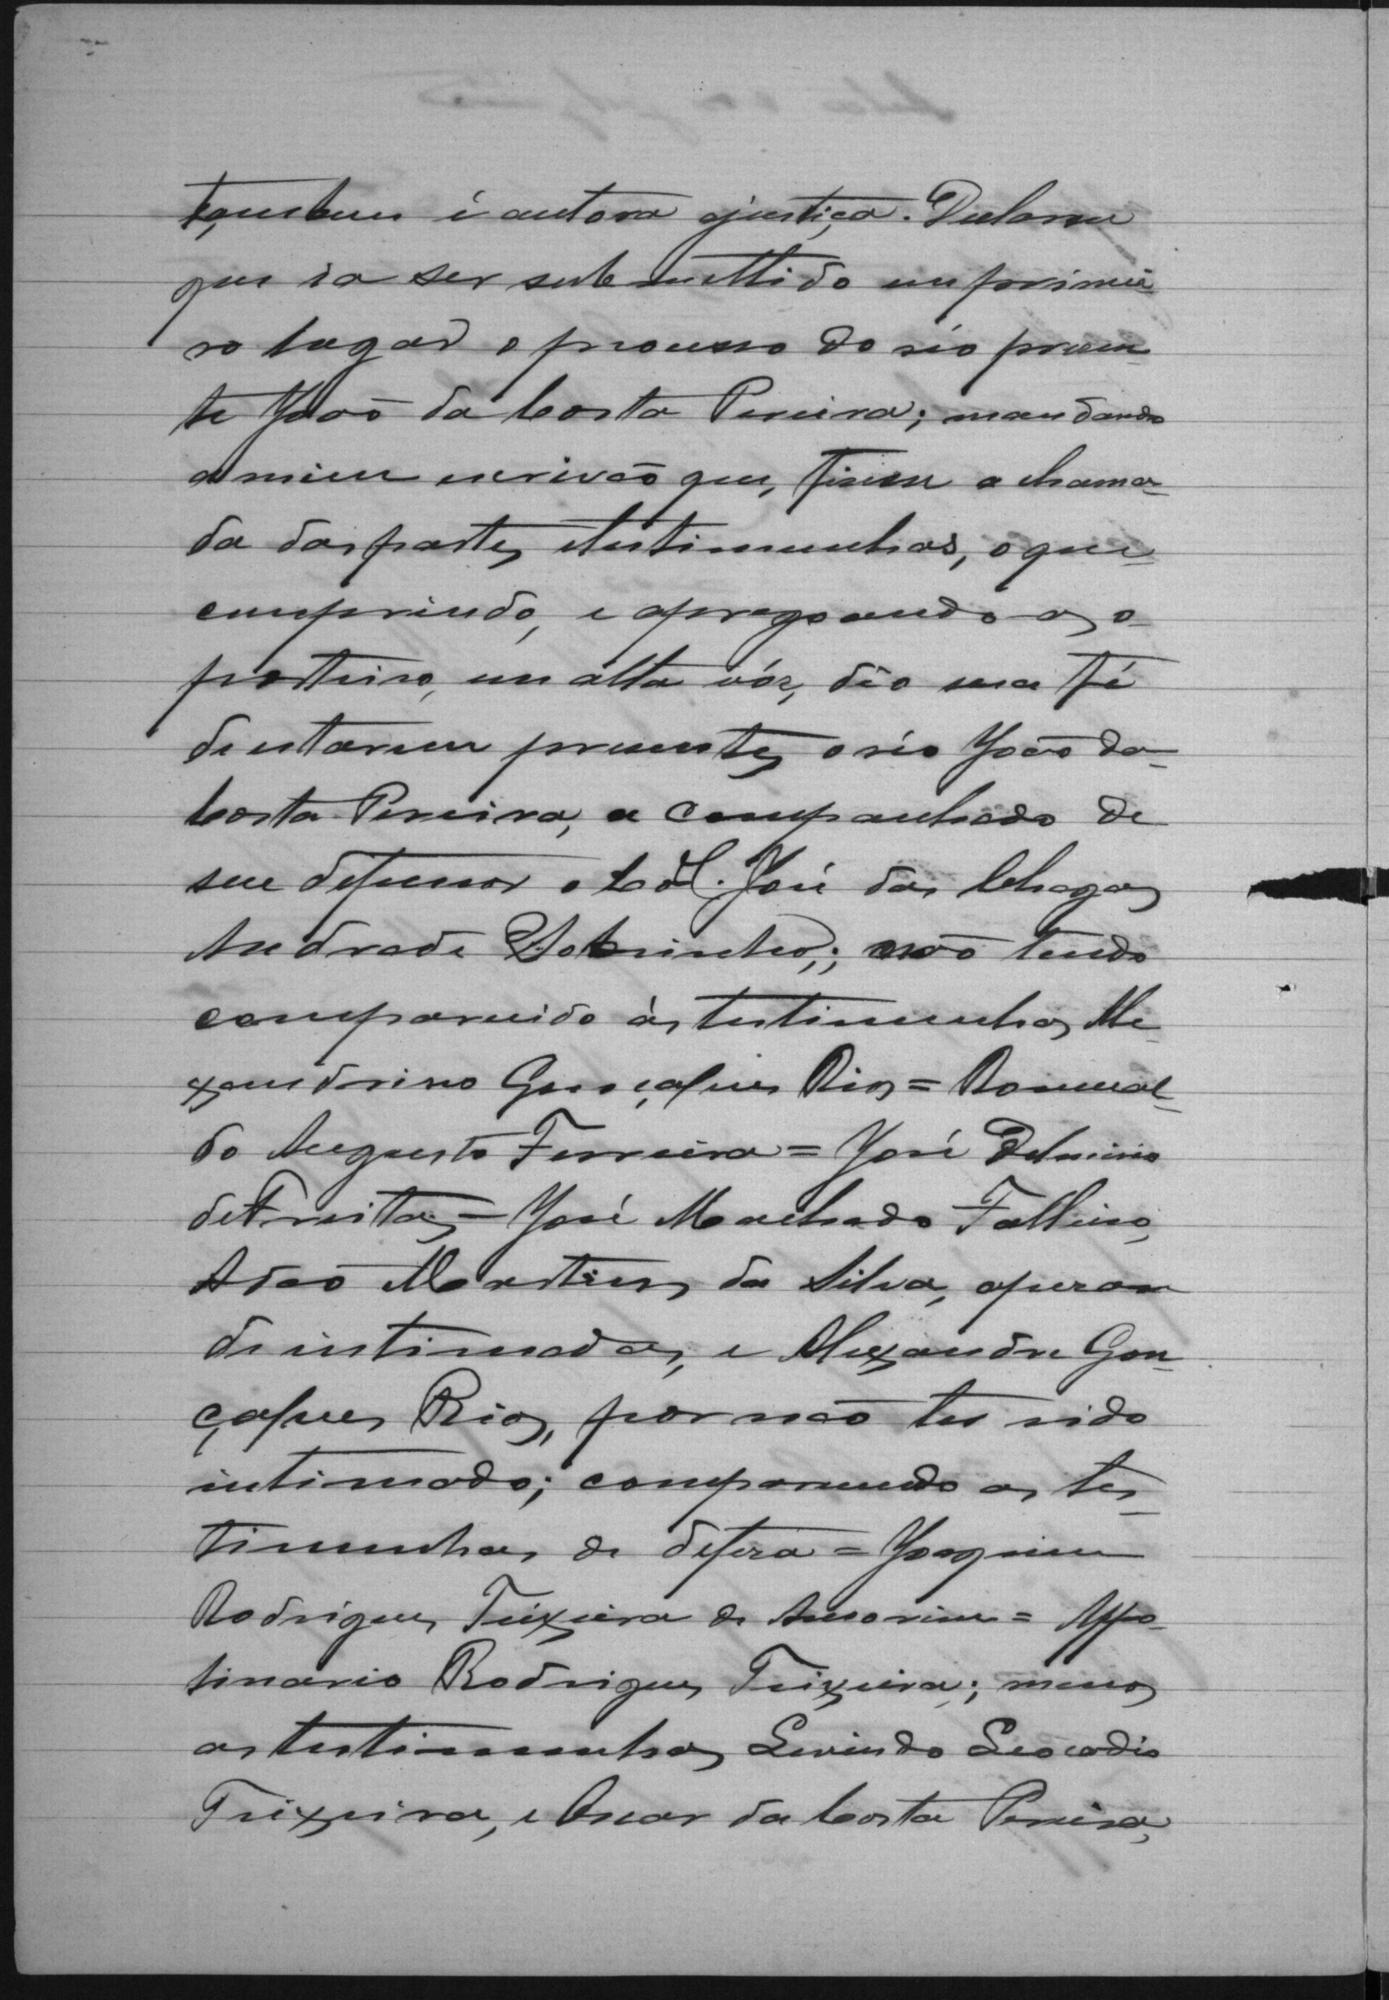 tambem é autora ajustiça. Declarou
que ia ser submettido em primei
ro lugar o processo do réo presen-
te João da Costa Pereira; mandando
a mim escrivão que, fisesse a chama-
da das partes etestimunhas, o que
cumprindo, e apregoando as o
porteiro, em alta vóz, déo sua fé
de estarem presentes o réo João da-
Costa Pereira, a companhado de
seu defensor o Coel. José das Chagas
Andrade Sobrinho,; não tendo
comparecido ás testimunhas Ale-
xandrino Gonçalves Rios = Romual-
do Augusto Ferreira = José Delmiro
de Freitas = José Machado Falleiro,
Adão Martins da Silva, apezar
de intimadas, e Alexandre Gon-
çalves Rios, por não ter sido
intimado; comparecendo as tes-
timunhas de defeza = Joaquim
Rodrigues Teixeira de Amorim = Apo-
linario Rodrigues Teixeira; menos
as testimunhas Levindo Leocadio
Teixeira, e Cesar da Costa Pereira,